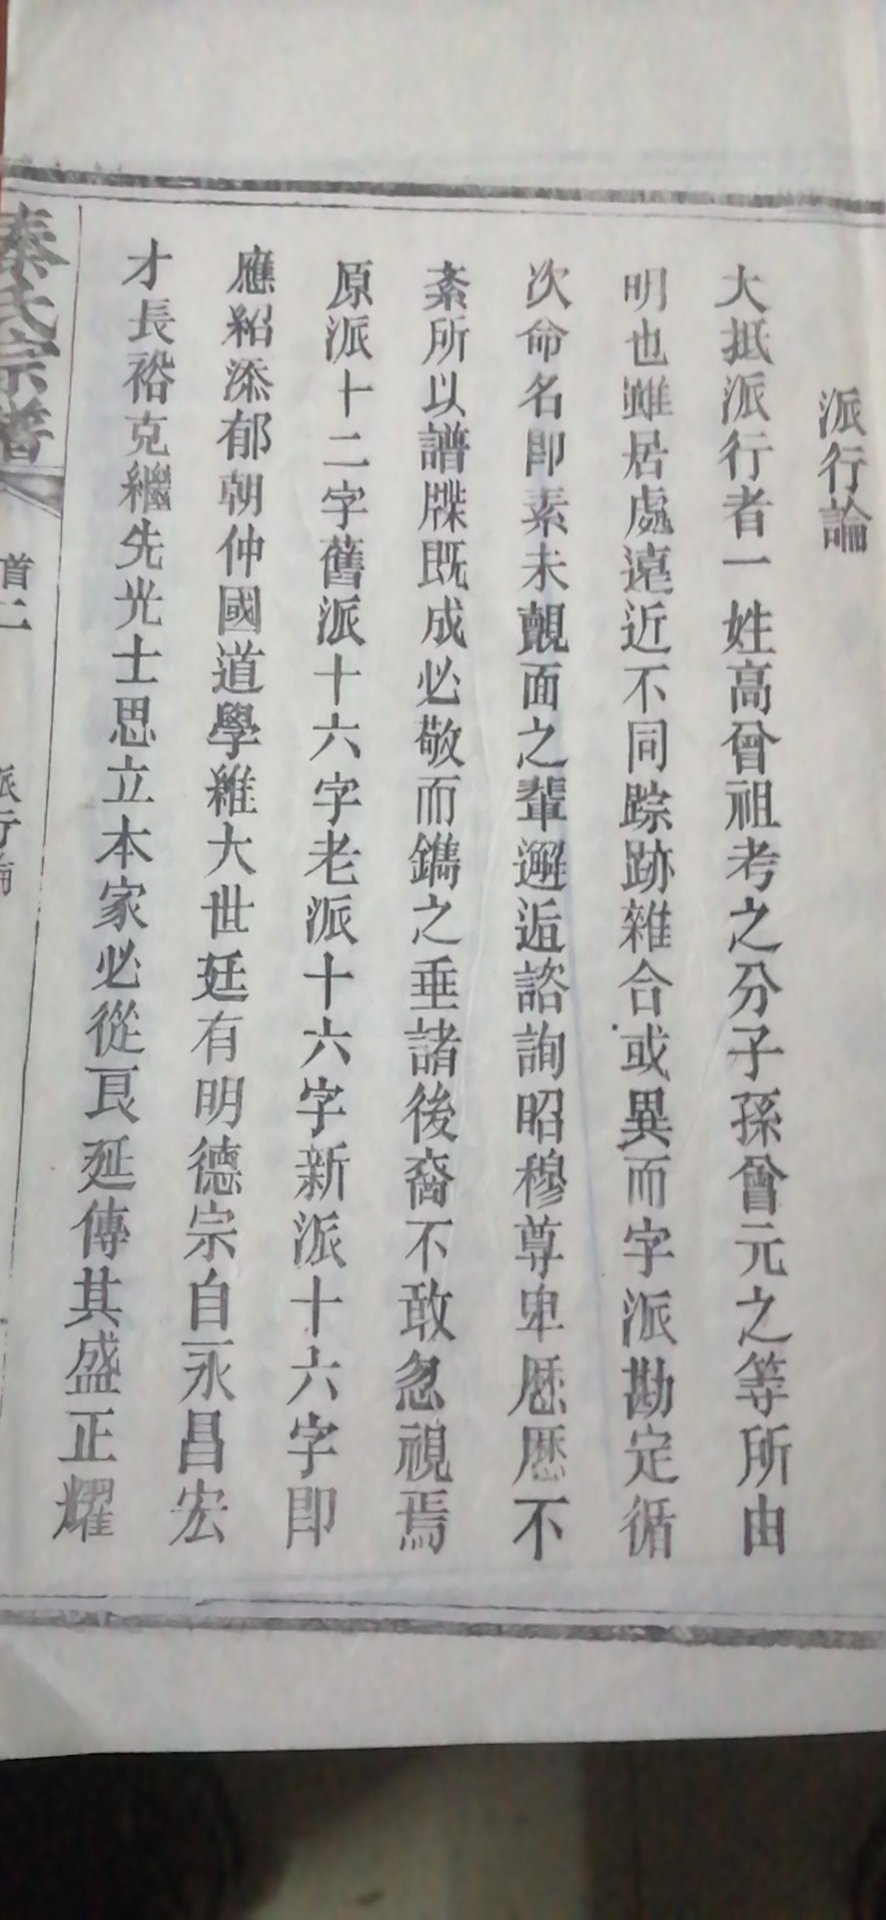 派行論
大抵派行者一姓高曾祖考之分子孫曾元之等所由
明也雖居處遠近不同踪跡雜合或異而字派勘定循
次命名即素未覿面之輩邂逅諮詢昭穆尊卑歷歷不
紊所以譜牒既成必敬而鐫之垂諸後裔不敢忽視焉
原派十二字舊派十六字老派十六字新派十六字即
應紹添郁朝仲國道學維大世廷有明德宗自永昌宏
才長裕克繼先光士思立本家必從良延傳其盛正耀
秦氏宗譜
首二
派行論